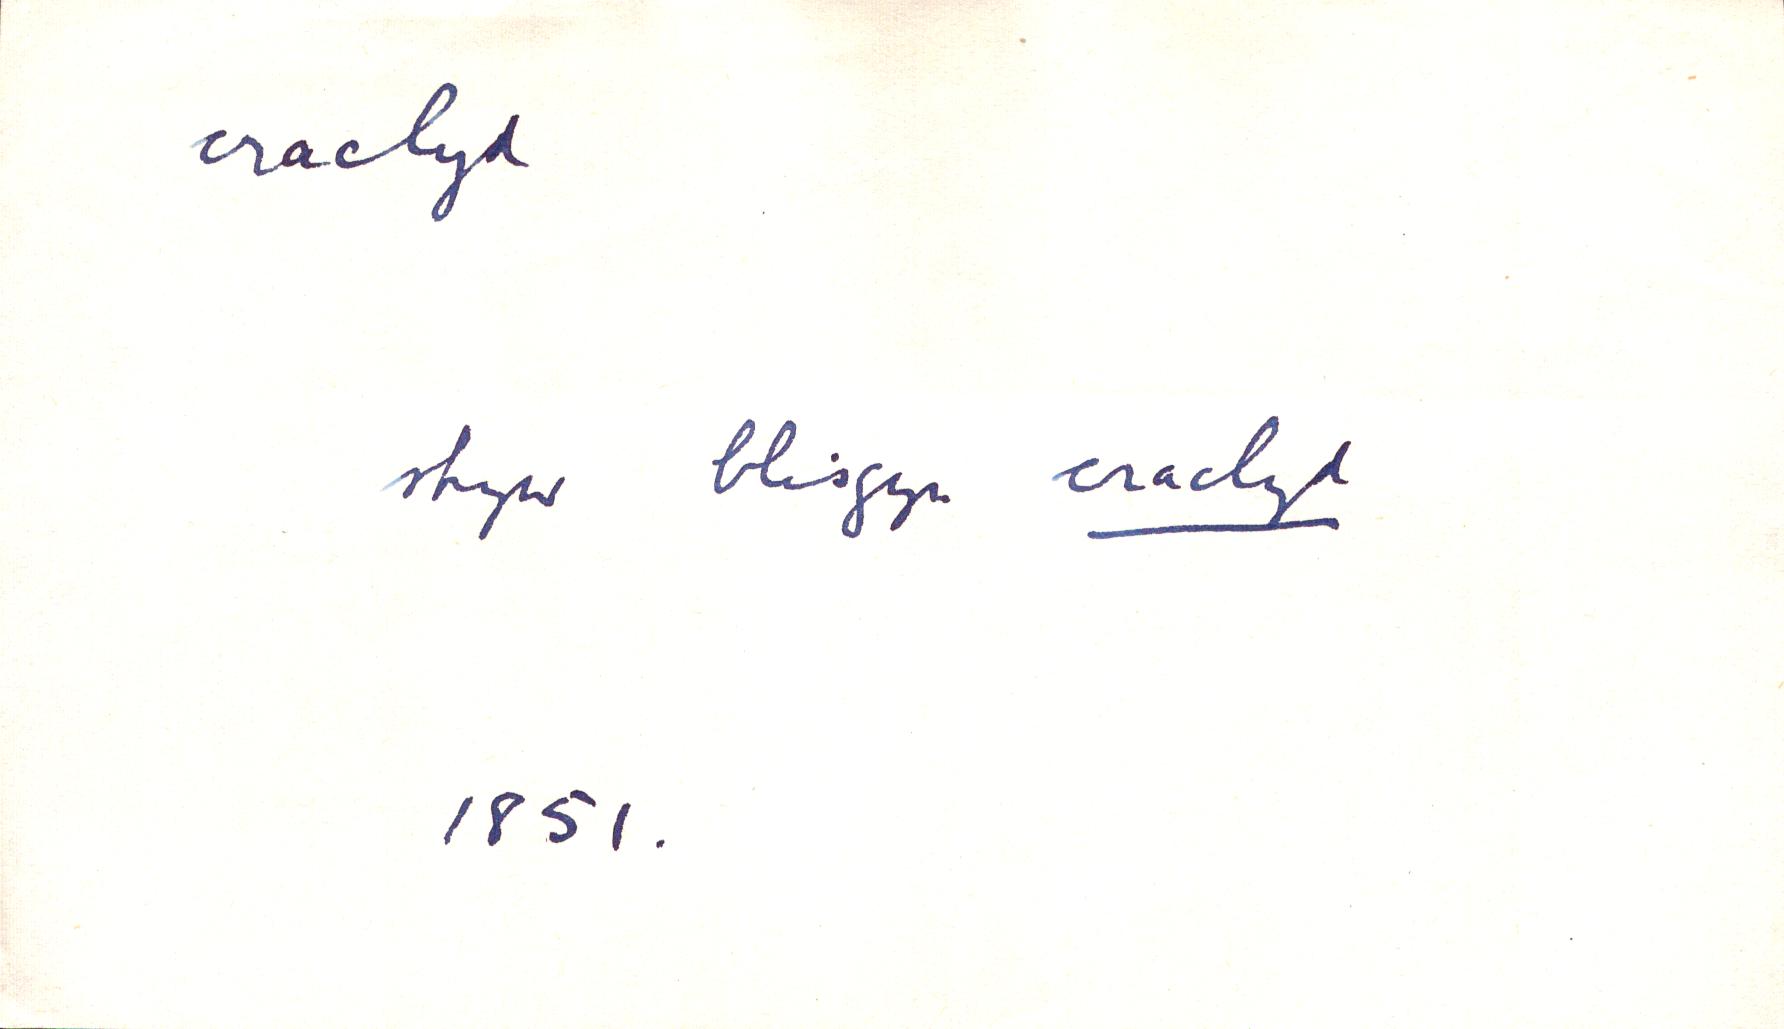 craclyd
rhyw blisgyn craclyd
1851.